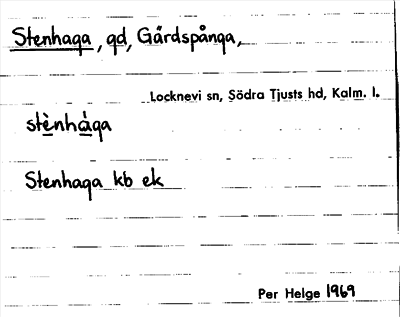 Stenhaga, gd, Gårdspånga,
Locknevi sn, Södra Tjusts hd, Kalm. l.
stènhàga
Stenhaga kb ek
Per Helge 1969